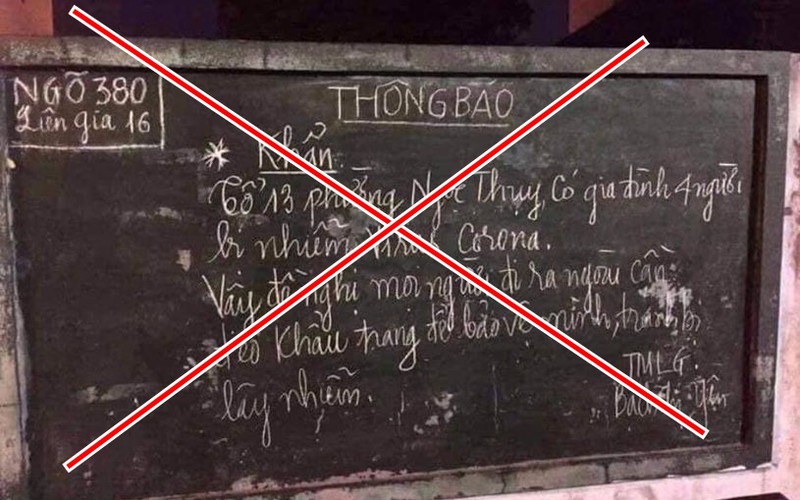 NGÕ 380
Liên gia 16
THÔNG BÁO
* Khẩn:
Tổ 13 phường Ngọc Thụy, Có gia đình 4 người
bị nhiễm Virus Corona.
Vậy đề nghị mọi người đi ra ngoài cần
đeo Khẩu trang để bảo vệ mình, tránh bị
lây nhiễm.
TMLG.
Yến